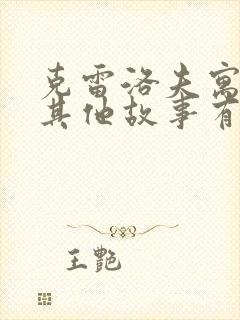 克雷洛夫寓
其他故事有
王艷